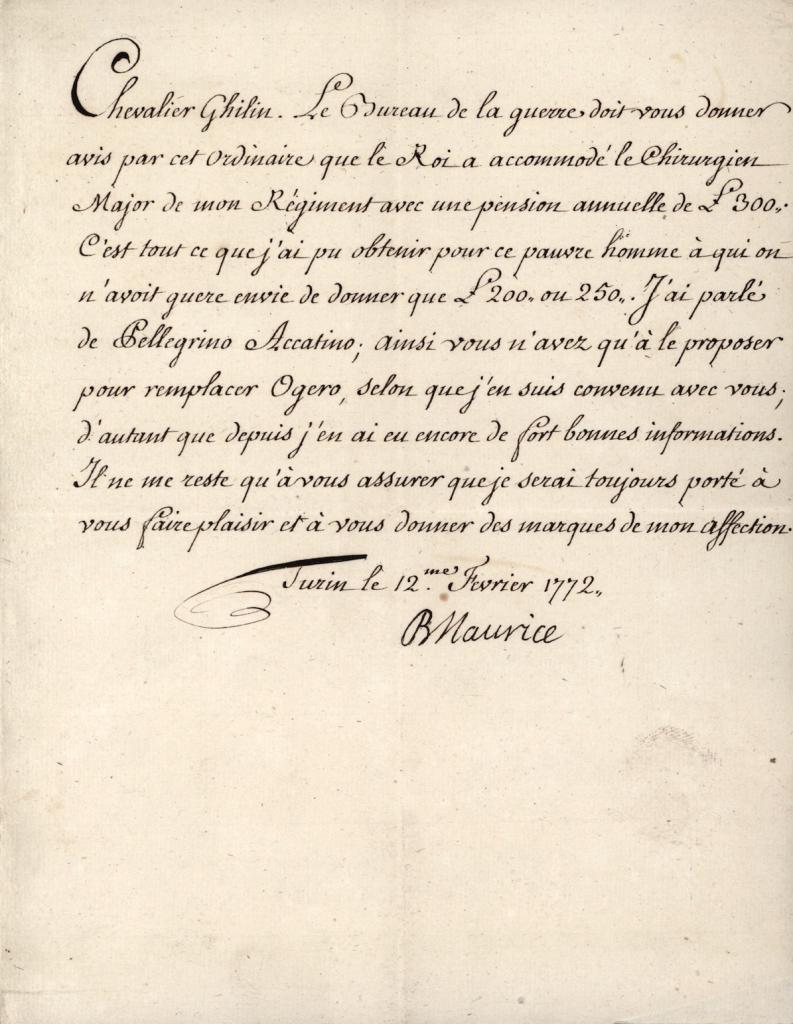 Chevalier Ghilin. Le Bureau de la guerre doit vous donner
avis par cet Ordinaire que le Roi a accommodé le Chirurgien
Major de mon Régiment avec une pension annuelle de £ 300,,.
C'est tout ce que j'ai pu obtenir pour ce pauvre homme à qui on
n'avoit guere envie de donner que £ 200,, ou 250,,. J'ai parlé
de Pellegrino Accatino; ainsi vous n'avez qu'à le proposer
pour remplacer Ogero, selon que j'en suis convenu avec vous;
d'autant que depuis j'en ai eu encore de fort bonnes informations.
Il ne me reste qu'à vous assurer que je serai toujours porté à
vous faire plaisir et à vous donner des marques de mon affection.
Turin le 12.me Fevrier 1772,,
BMaurice